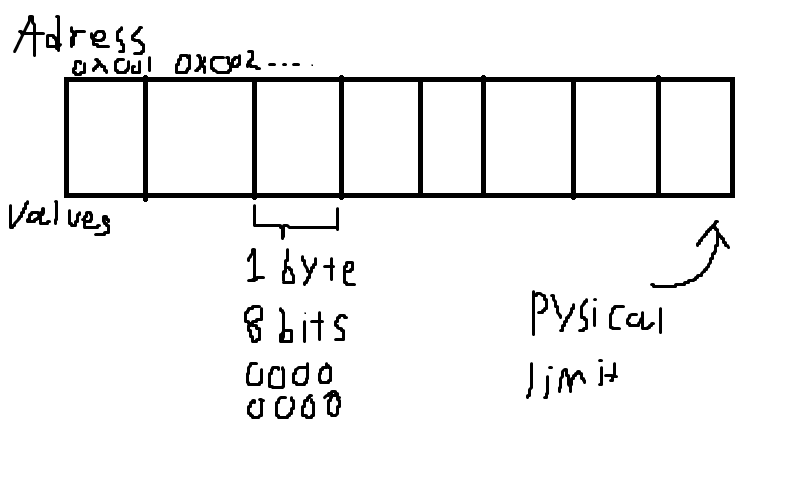 Adress
0x001 0x002....
Values
1 byte
8 bits
0000
0000
Pysical
limit